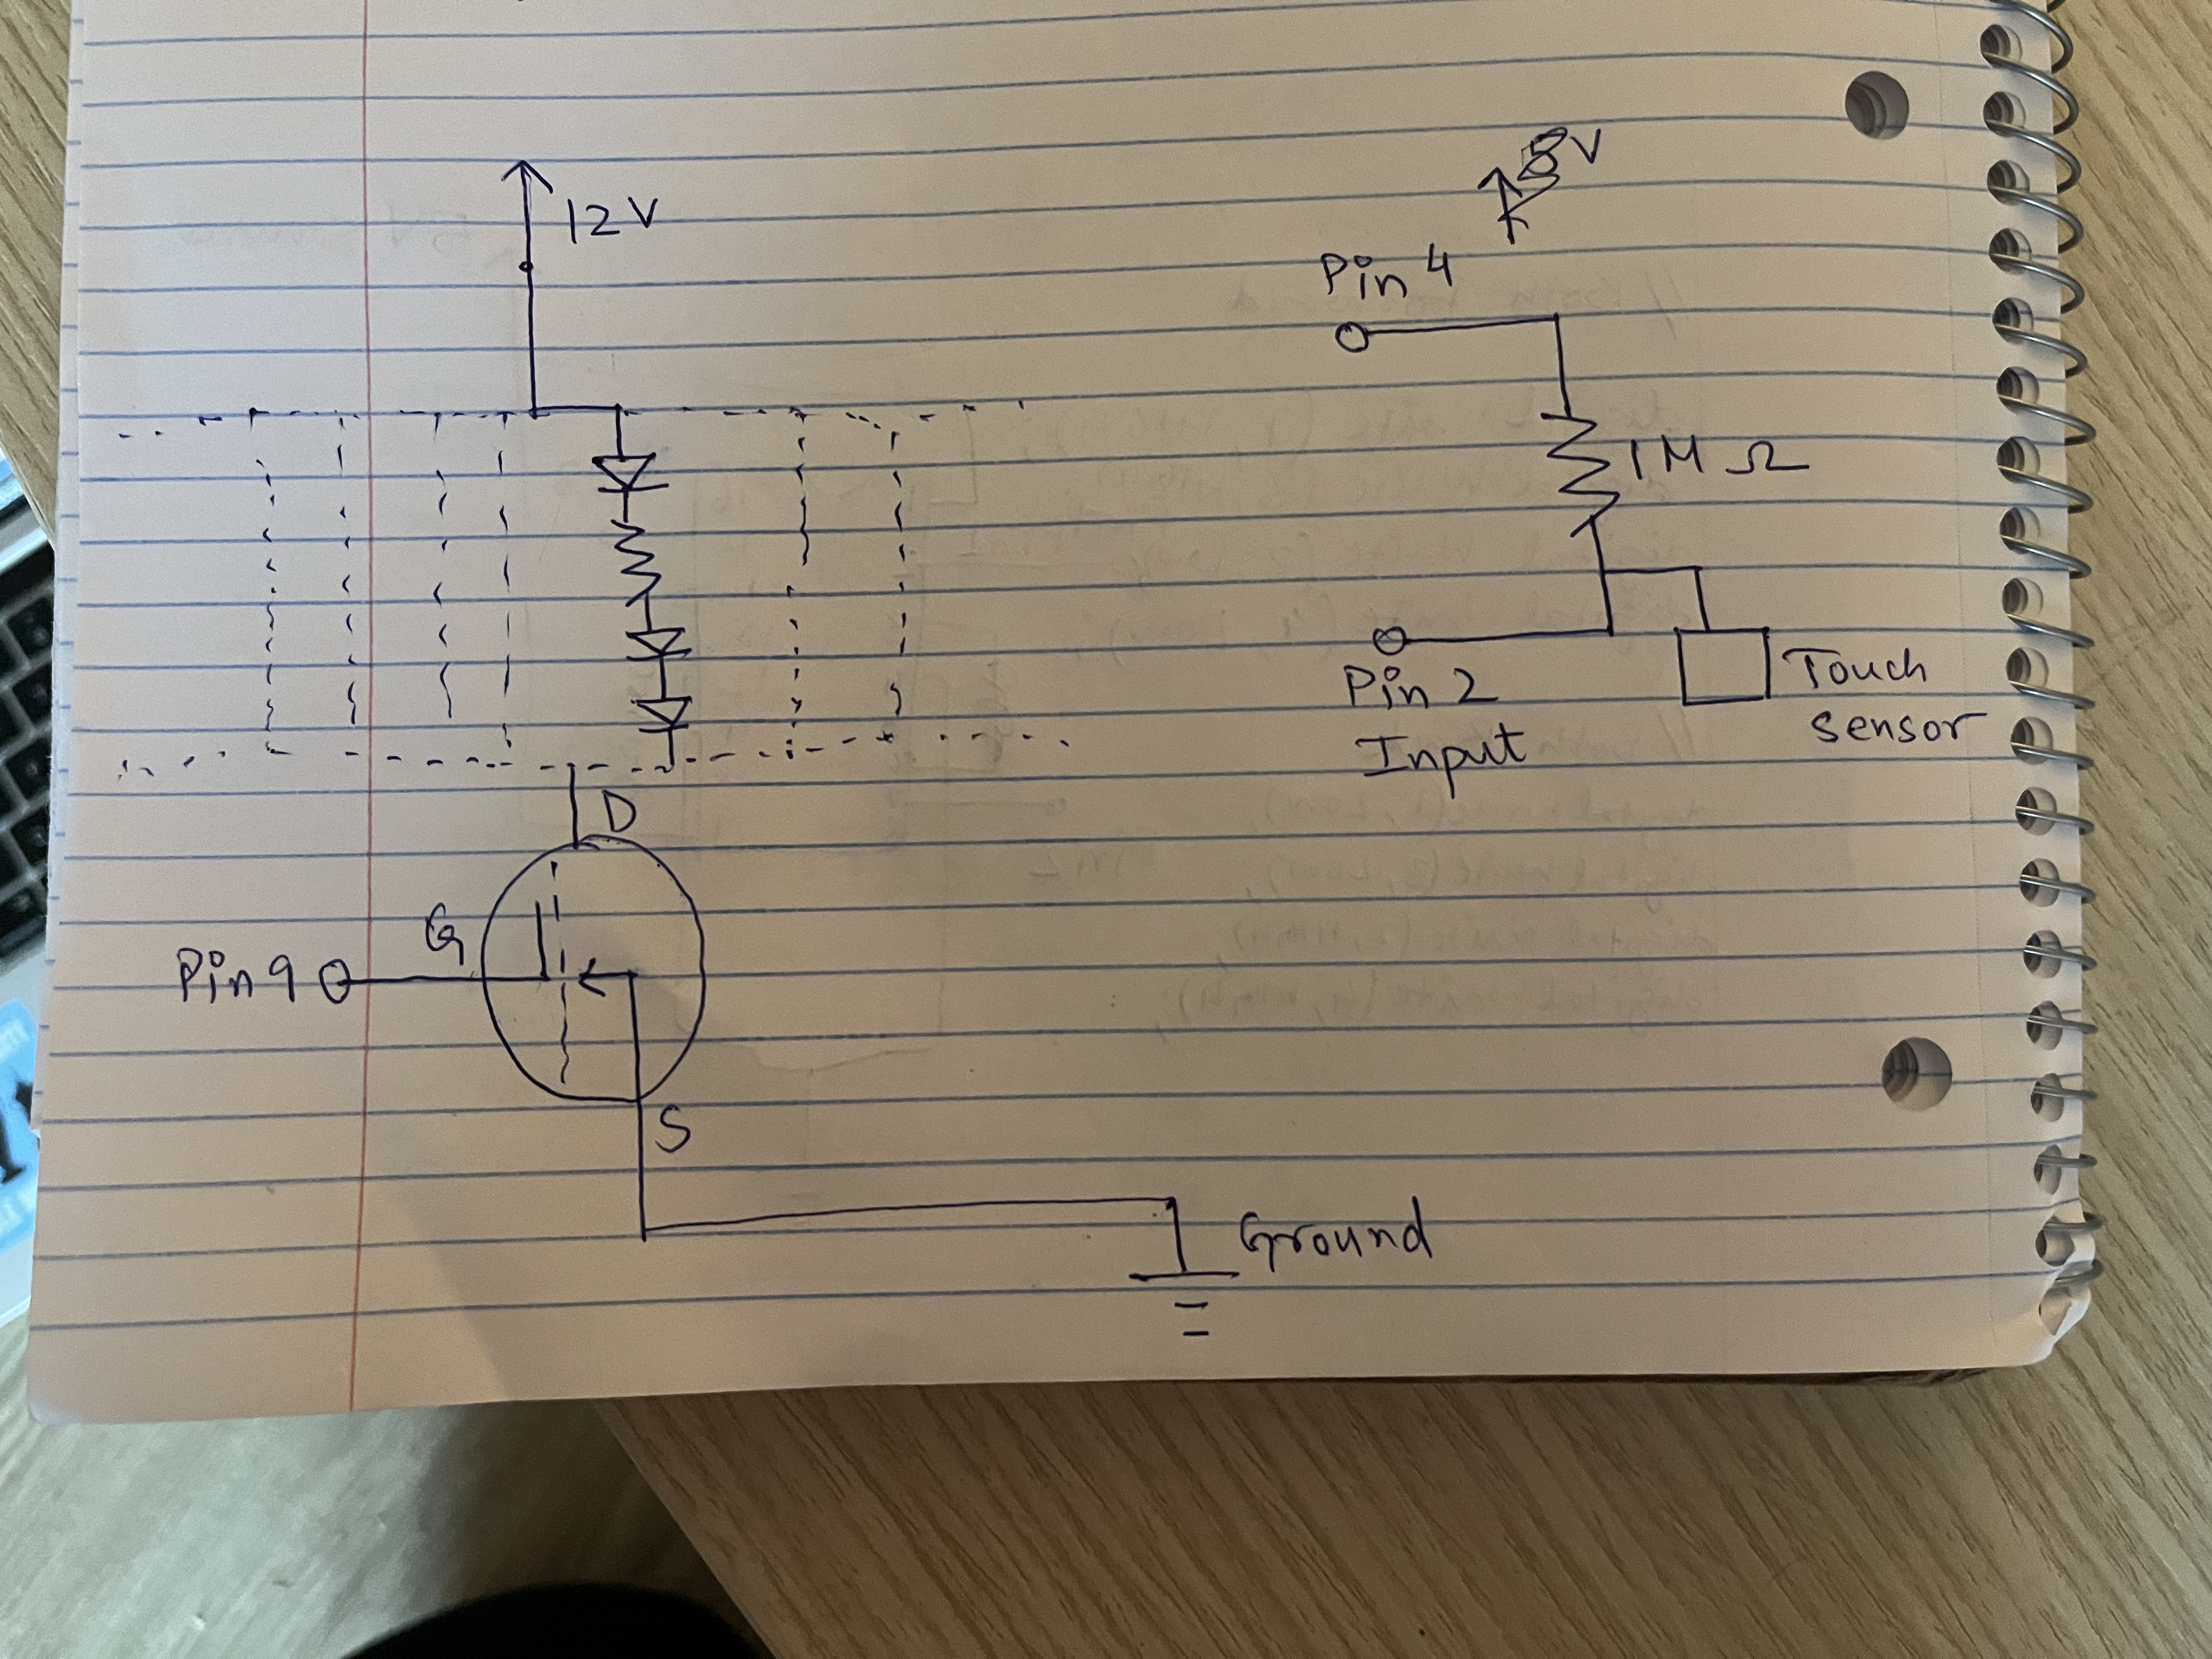 12V
5V
Pin 4
1M Ω
Pin 2
Input
Touch
sensor
D
G
Pin 9
S
Ground